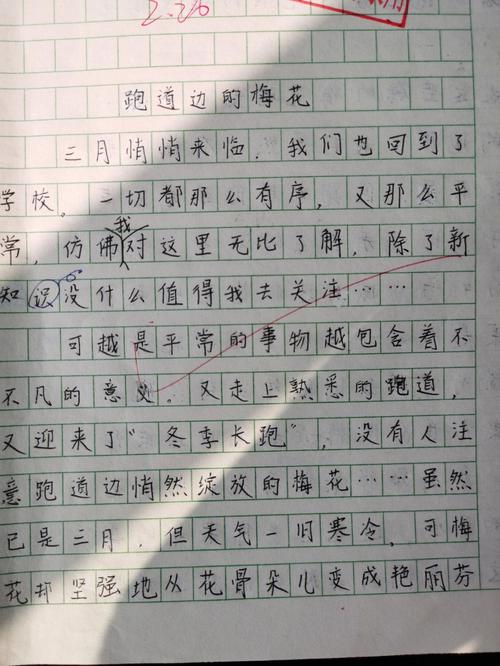 2.26
用
跑道边的梅花
三月悄悄来临，我们也回到了
学校。一切都那么有序，又那么平
常，仿佛我对这里无比了解，除了新
知识没什么值得我去关注……
可越是平常的事物越包含着不
不凡的意义。又走上熟悉的跑道，
又迎来了“冬季长跑”，没有人注
意跑道边悄然绽放的梅花……虽然
已是三月，但天气一旧寒冷，可梅
花却坚强地从花骨朵儿变成艳丽芬